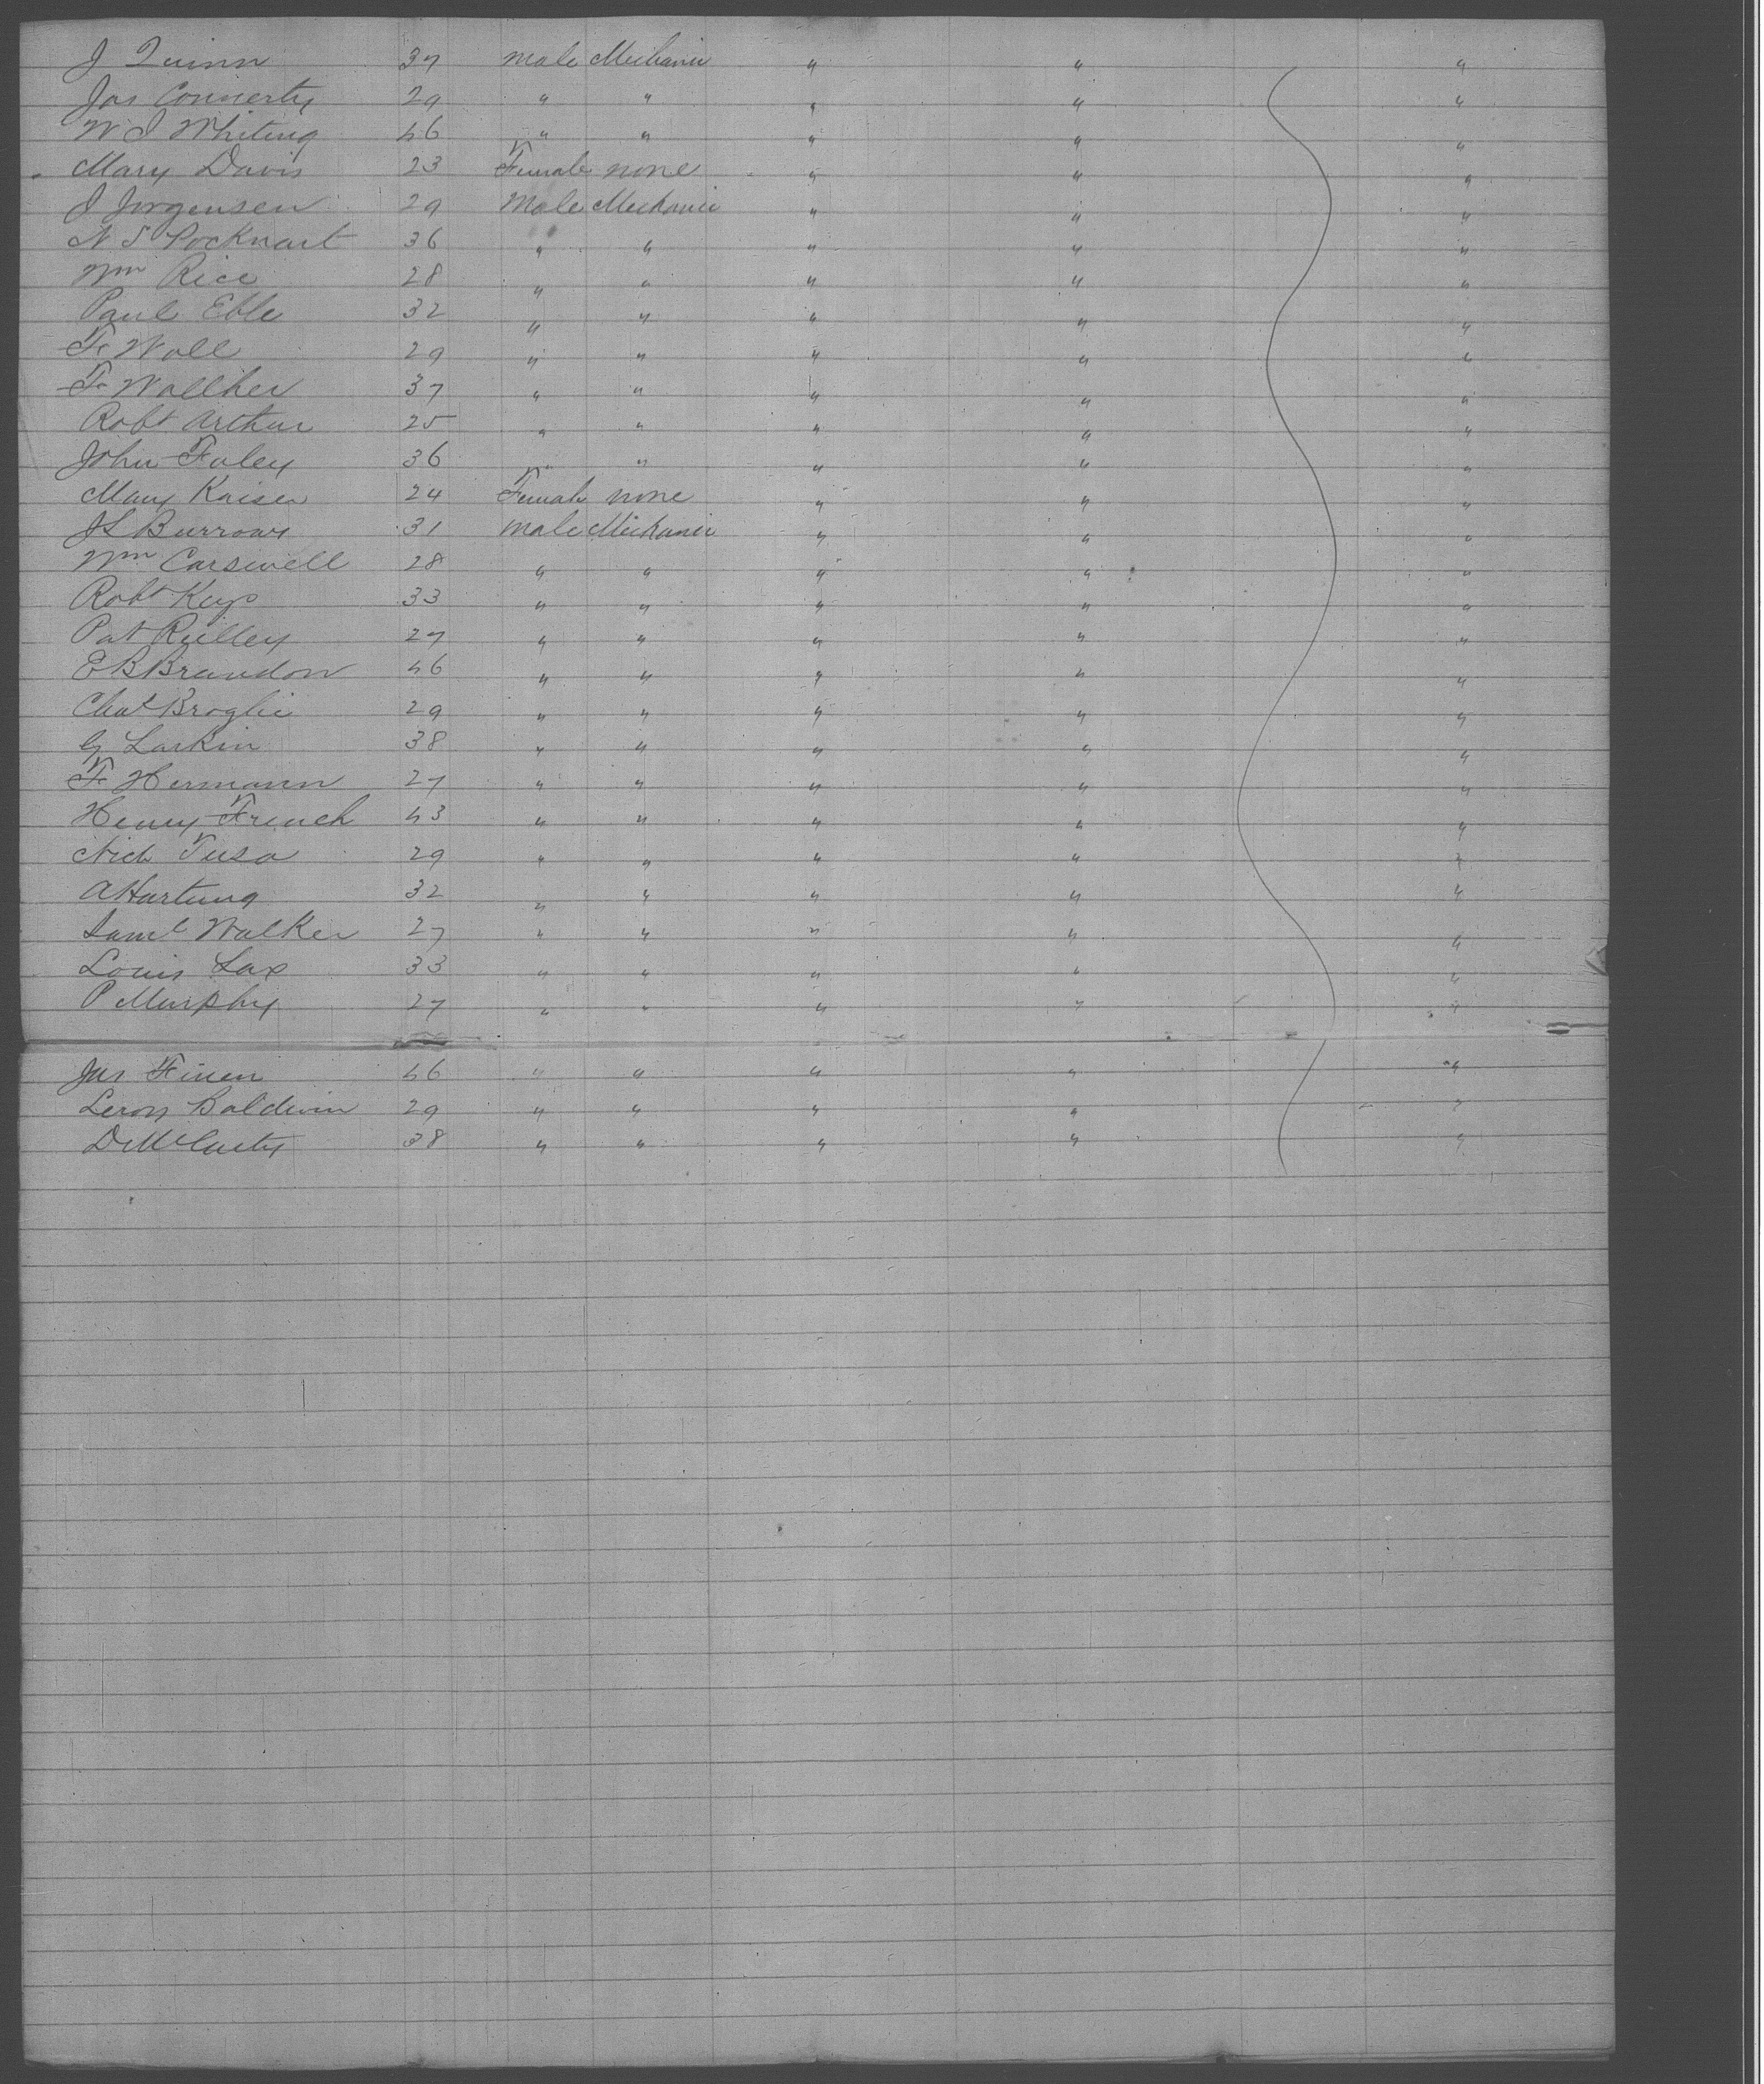 J Quinn 37 Male Mechanic " " "
Jas Connerty 29 " " " " "
W J Whiting 46 " " " " "
Mary Davis 23 Female none " " "
J Jorgensen 29 Male Mechanic " " "
N S Pocknart 36 " " " " "
Wm Rice 28 " " " " "
Paul Eble 32 " " " " "
F Wall 29 " " " " "
F Wallher 37 " " " " "
Robt Arthur 25 " " " " "
John Foley 36 " " " " "
Mary Kaiser 24 Female none " " "
J L Burrows 31 Male Mechanic " " "
Wm Carswell 28 " " " " "
Robt Keys 33 " " " " "
Pat Reilley 27 " " " " "
E B Brandon 46 " " " " "
Chas Broglie 29 " " " " "
G Larkin 38 " " " " "
F Hermann 27 " " " " "
Henry French 43 " " " " "
Nich Tusa 29 " " " " "
A Hartung 32 " " " " "
Saml Walker 27 " " " " "
Louis Lax 33 " " " " "
P Murphy 27 " " " " "
Jas Finen 46 " " " " "
Leroy Baldwin 29 " " " " "
D McCarty 38 " " " " "